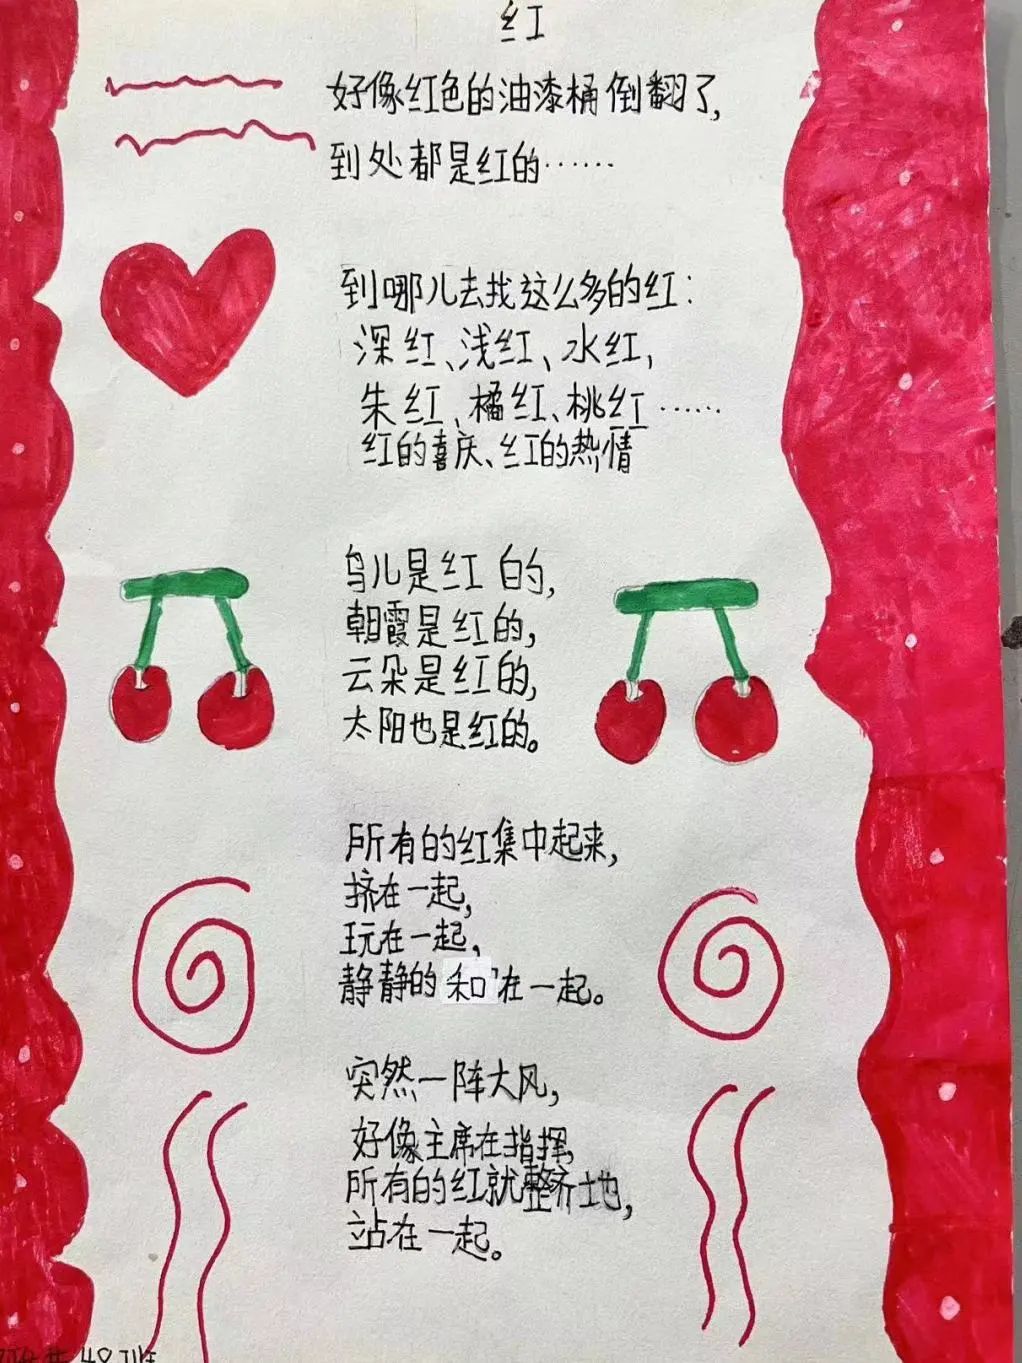 红
好像红色的油漆桶倒翻了，
到处都是红的……
到哪儿去找这么多的红：
深红、浅红、水红，
朱红、橘红、桃红……
红的喜庆、红的热情
鸟儿是红的，
朝霞是红的，
云朵是红的，
太阳也是红的。
所有的红集中起来，
挤在一起，
玩在一起，
静静的和在一起。
突然一阵大风，
好像主席在指挥，
所有的红就整齐地，
站在一起。